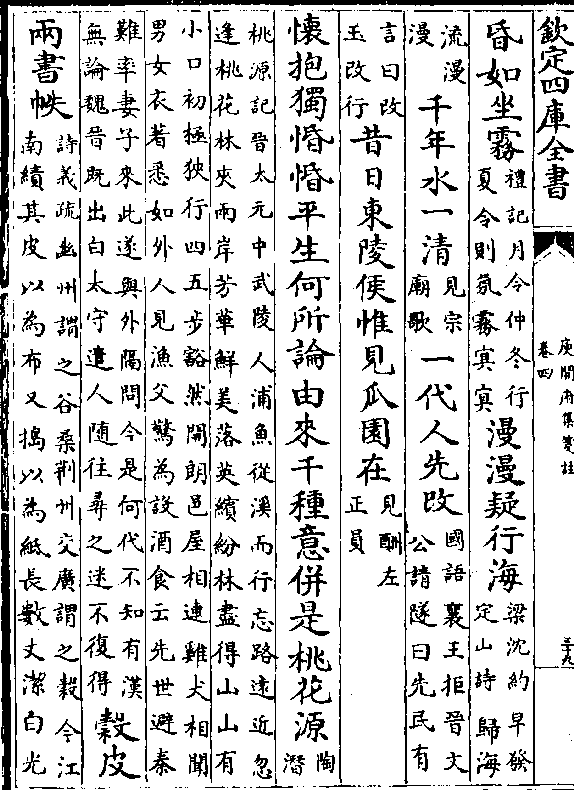 欽定四庫全書
庾開府集箋註
卷四
三十九
昏如坐霧禮記月令仲冬行夏令則氛霧㝠㝠漫漫疑行海梁沈約早發定山詩歸海
流漫漫千年水一清見宗廟歌一代人先改國語襄王拒晉文公請隧曰先民有
言曰改玉改行昔日東陵侯惟見瓜園在見酬左正員
懷抱獨惛惛平生何所論由來千種意併是桃花源陶潛
桃源記晉太元中武陵人浦魚從溪而行忘路遠近忽
逢桃花林夾兩岸芳華鮮美落英繽紛林盡得山山有
小口初極狹行四五步豁然開朗邑屋相連雞犬相聞
男女衣著悉如外人見漁父驚為設酒食云先世避秦
難率妻子來此遂與外隔問今是何代不知有漢
無論魏晉既出白太守遣人随往尋之迷不復得穀皮
兩書帙詩義疏幽州謂之谷桑荆州交廣謂之穀今江南績其皮以為布又搗以為紙長數丈潔白光